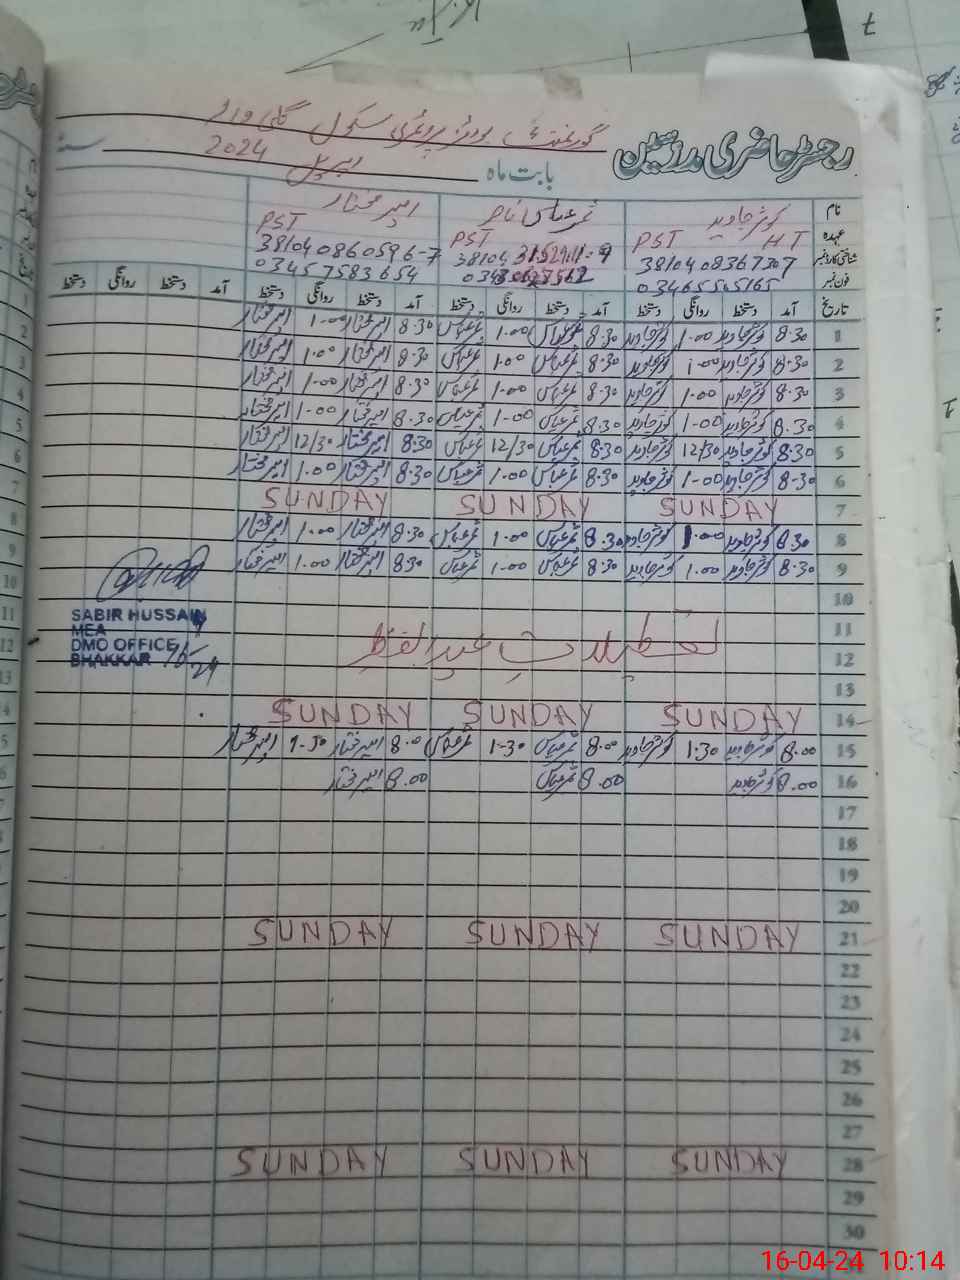 رجسٹر حاضری مدرسین
گورنمنٹ پرائمری سکول
بابت ماہ اپریل 2024 سنہ
نام کوثر جاوید ثمر عباس امیر مختار
عہدہ PST H T PST PST
شناختی کارڈ نمبر 38104 0860596-7
فون نمبر 03465505165 03457583654
تاریخ آمد دستخط روانگی دستخط آمد دستخط روانگی دستخط آمد دستخط روانگی دستخط آمد دستخط روانگی دستخط
1 8.30 کوثر جاوید 1.00 کوثر جاوید 8.30 ثمر عباس 1.00 ثمر عباس 8.30 امیر مختار 1.00 امیر مختار
2 8.30 کوثر جاوید 1.00 کوثر جاوید 8.30 ثمر عباس 1.00 ثمر عباس 8.30 امیر مختار 1.00 امیر مختار
3 8.30 کوثر جاوید 1.00 کوثر جاوید 8.30 ثمر عباس 1.00 ثمر عباس 8.30 امیر مختار 1.00 امیر مختار
4 8.30 کوثر جاوید 1.00 کوثر جاوید 8.30 ثمر عباس 1.00 ثمر عباس 8.30 امیر مختار 1.00 امیر مختار
5 8.30 کوثر جاوید 12/30 کوثر جاوید 8.30 ثمر عباس 12/30 ثمر عباس 8.30 امیر مختار 12/30 امیر مختار
6 8.30 کوثر جاوید 1.00 کوثر جاوید 8.30 ثمر عباس 1.00 ثمر عباس 8.30 امیر مختار 1.00 امیر مختار
7 SUNDAY SUNDAY SUNDAY
8 8.30 کوثر جاوید 1.00 کوثر جاوید 8.30 ثمر عباس 1.00 ثمر عباس 8.30 امیر مختار 1.00 امیر مختار
9 8.30 کوثر جاوید 1.00 کوثر جاوید 8.30 ثمر عباس 1.00 ثمر عباس 8.30 امیر مختار 1.00 امیر مختار
10
11
تعطیلات عید الفطر
12
13
14 SUNDAY SUNDAY SUNDAY
15 8.00 کوثر جاوید 1.30 کوثر جاوید 8.00 ثمر عباس 1.30 ثمر عباس 8.00 امیر مختار 1.30 امیر مختار
16 8.00 کوثر جاوید 8.00 ثمر عباس 8.00 امیر مختار
17
18
19
20
21 SUNDAY SUNDAY SUNDAY
22
23
24
25
26
27
28 SUNDAY SUNDAY SUNDAY
29
30
SABIR HUSSAIN
MEA
DMO OFFICE
BHAKKAR
16-04-24 10:14